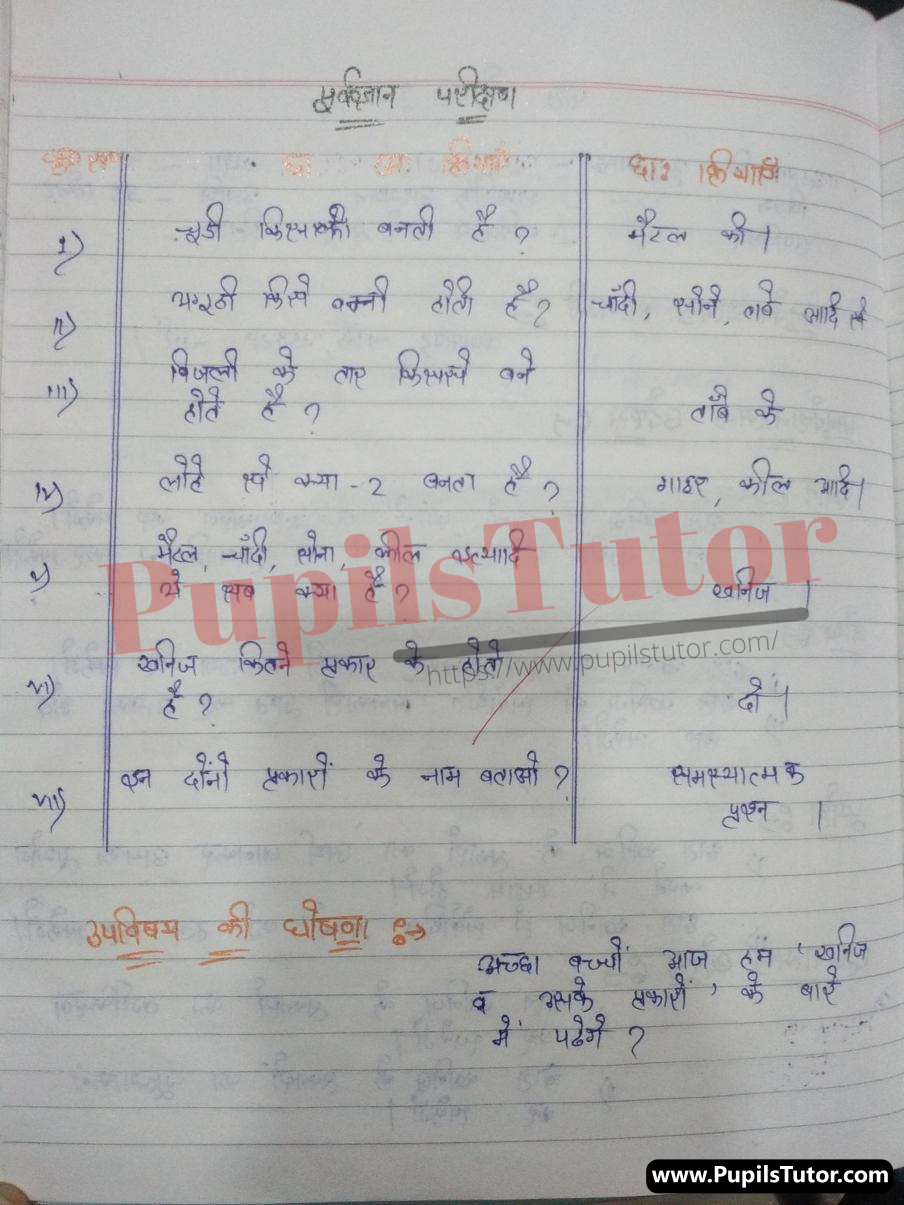 पूर्वज्ञान परीक्षण
क्र० सं० छा० अ० क्रियाएँ छा० क्रियाएँ
i) चूडी किसकी बनती है ? मैटल की ।
ii) अगूठी किसे बन्नी होती है ? चाँदी, सोने, तांबे आदि से
iii) बिजली के तार किससे बने
होते है ? ताँबे के
iv) लोहे से क्या-2 बनता है ? गाडर, कील आदि।
v) मैटल, चाँदी, सोना, कील इत्यादि
ये सब क्या है ? खनिज ।
vi) खनिज कितने प्रकार के होते
है ? दो ।
vii) इन दोनों प्रकारों के नाम बताओ ? समस्यात्मक
प्रश्न ।
उपविषय की घोषणा :->
अच्छा बच्चों आज हम 'खनिज
व उसके प्रकारों' के बारे
में पढेगे ?
PupilsTutor
https://www.pupilstutor.com/
www.PupilsTutor.com